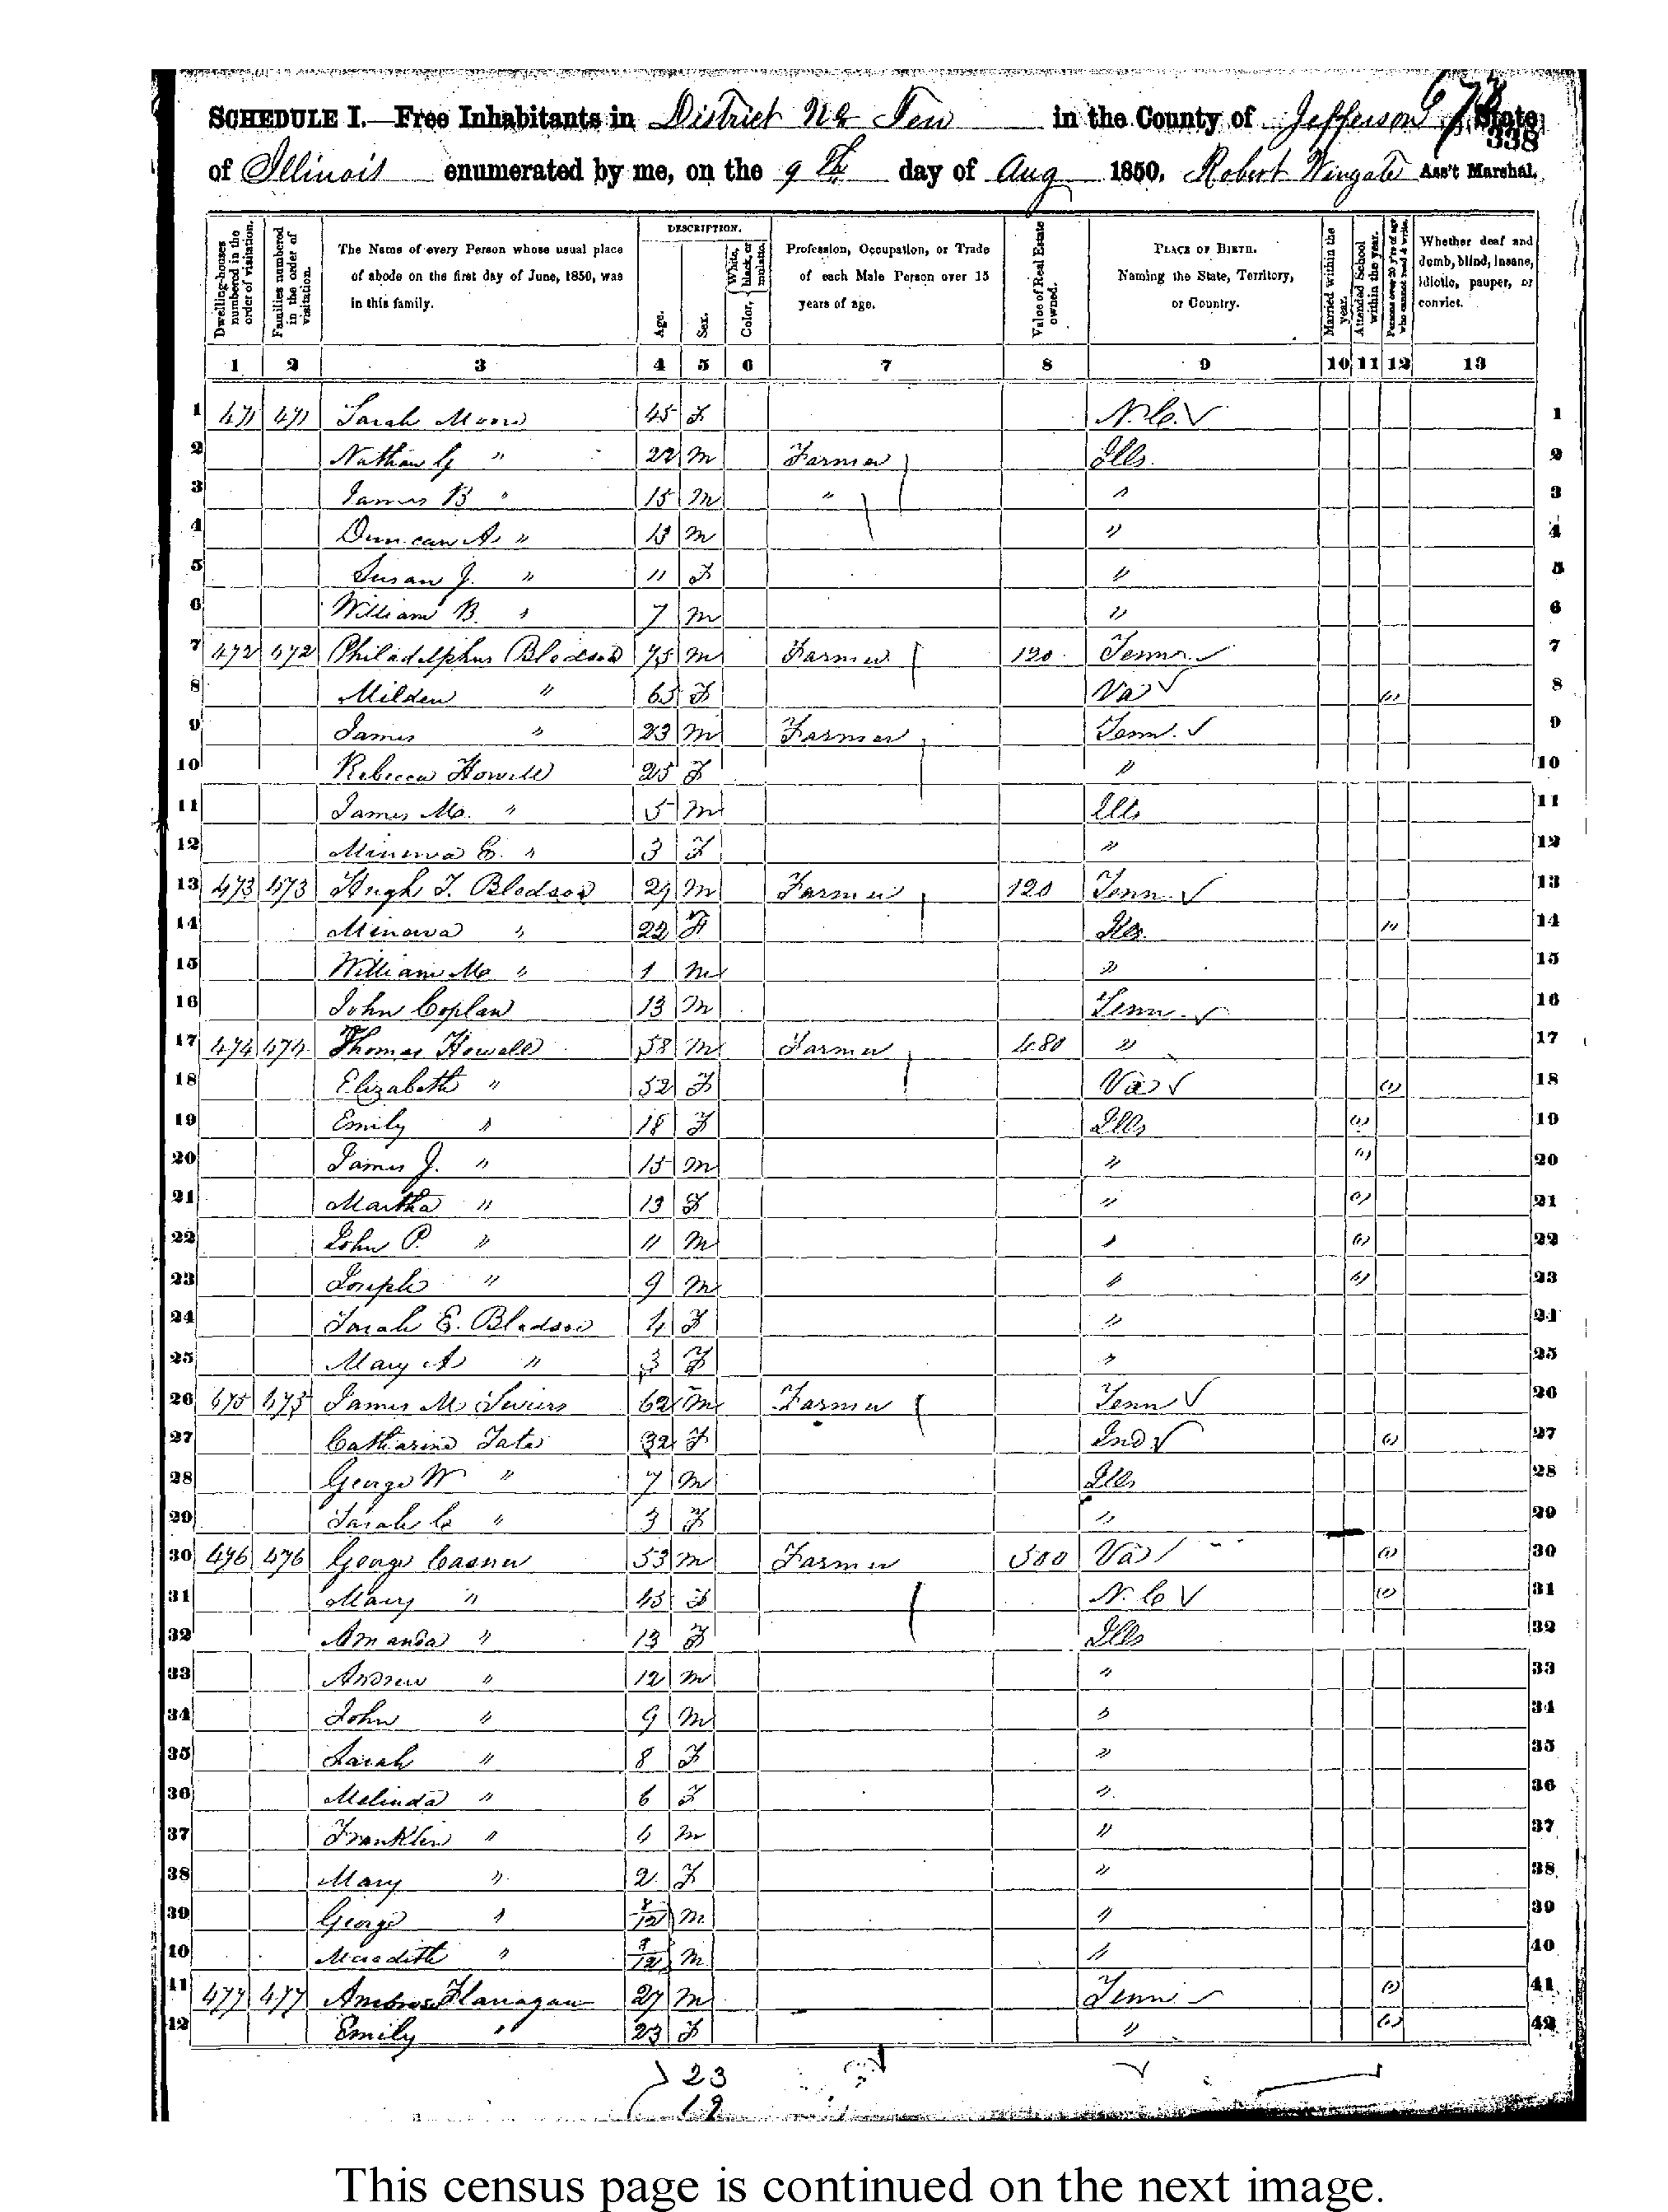 678
338
SCHEDULE I.—Free Inhabitants in District No Ten in the County of Jefferson State
of Illinois enumerated by me, on the 9th day of Aug 1850. Robert Wingate Ass't Marshal.
Dwelling-houses numbered in the order of visitation.
Families numbered in the order of visitation.
The Name of every Person whose usual place of abode on the first day of June, 1850, was in this family.
DESCRIPTION.
Age.
Sex.
Color, White, black, or mulatto.
Profession, Occupation, or Trade of each Male Person over 15 years of age.
Value of Real Estate owned.
PLACE OF BIRTH. Naming the State, Territory, or Country.
Married within the year.
Attended School within the year.
Persons over 20 y'rs of age who cannot read & write.
Whether deaf and dumb, blind, insane, idiotic, pauper, or convict.
1 2 3 4 5 6 7 8 9 10 11 12 13
1 471 471 Sarah Moore 45 F N.C. 1
2 Nathan G " 22 M Farmer Ills. 2
3 James B " 15 M " " 3
4 Duncan A. " 13 M " 4
5 Susan J. " 11 F " 5
6 William B. " 7 M " 6
7 472 472 Philadelphus Bledsoe 75 M Farmer 120 Tenn. 7
8 " 65 F Va 8
9 James " 23 M Farmer Tenn. 9
10 Rebecca Howell 25 F " 10
11 James Mc. " 5 M Ills 11
12 Minerva E. " 3 F " 12
13 473 473 Hugh T. Bledsoe 29 M Farmer 120 Tenn. 13
14 Minerva " 22 F Ills. 14
15 William Mc " 1 M " 15
16 John Coplan 13 M Tenn. 16
17 474 474 Thomas Howell 58 M Farmer 480 " 17
18 Elizabeth " 52 F Va 18
19 Emily " 18 F Ills 19
20 James J. " 15 M " 20
21 Martha " 13 F " 21
22 John P. " 11 M " 22
23 Joseph " 9 M " 23
24 Sarah E. Bledsoe 4 F " 24
25 Mary A " 3 F " 25
26 475 475 James M 62 M Farmer Tenn 26
27 Catharine Tate 32 F Ind 27
28 George W " 7 M Ills 28
29 Sarah C " 3 F " 29
30 476 476 George Casner 53 M Farmer 500 Va 30
31 Mary " 45 F N.C 31
32 Amanda " 13 F Ills 32
33 Andrew " 12 M " 33
34 John " 9 M " 34
35 Sarah " 8 F " 35
36 Melinda " 6 F " 36
37 Franklin " 4 M " 37
38 Mary " 2 F " 38
39 George " 8/12 M " 39
40 Meredith " 8/12 M " 40
41 477 477 Ambrose Flanagan 27 M Tenn 41
42 Emily " 23 F " 42
23
19
This census page is continued on the next image.